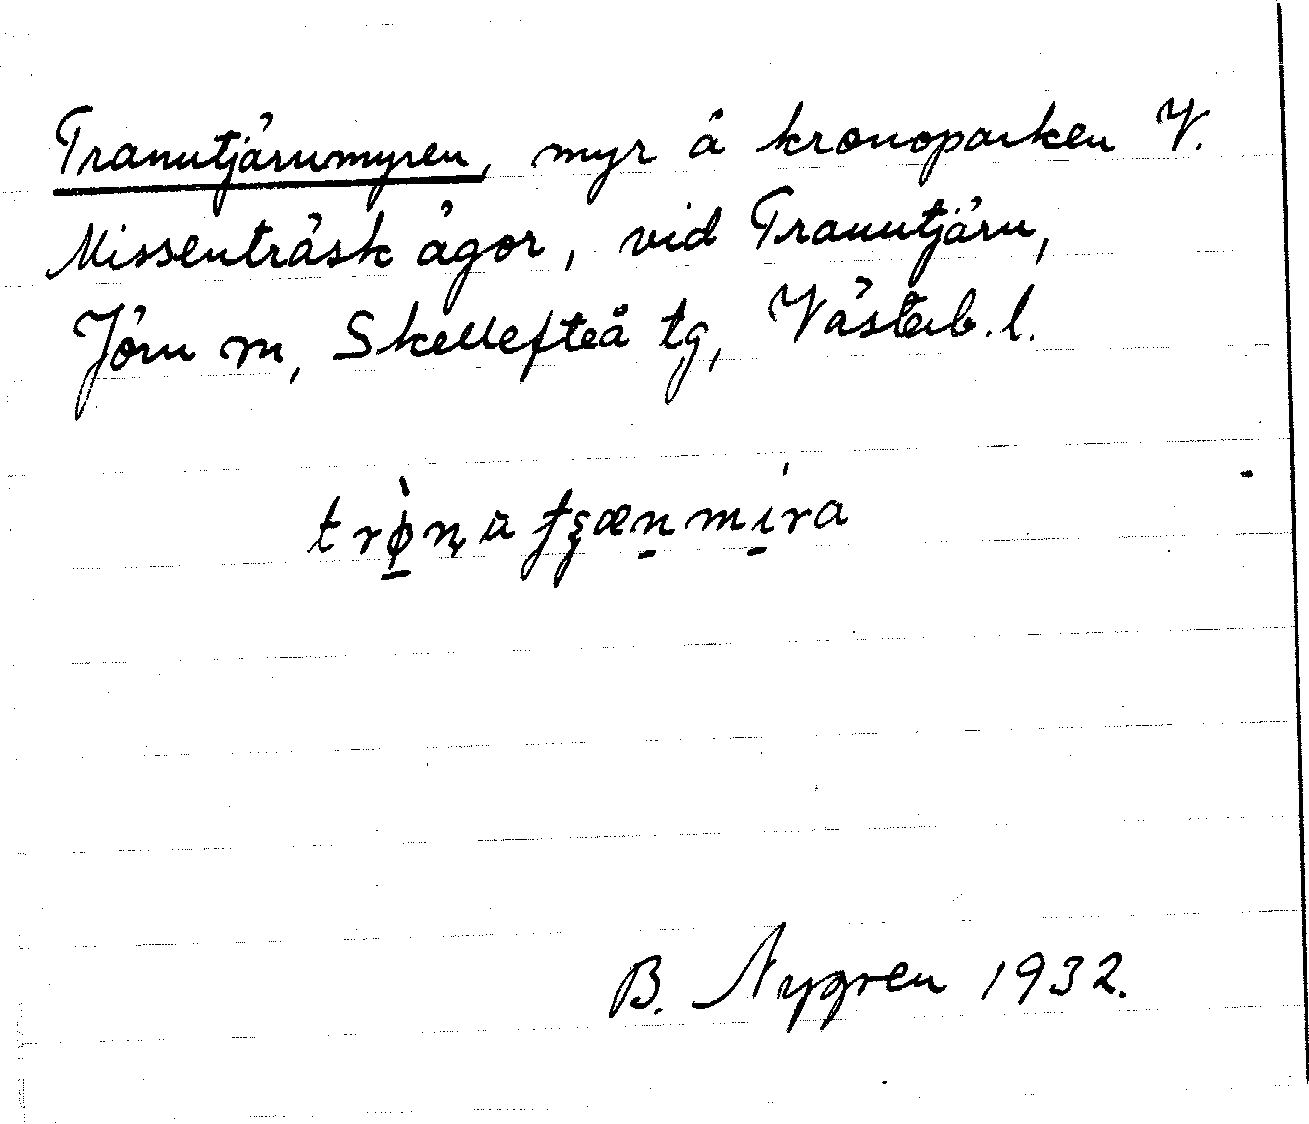 Tranutjärnmyren, myr å kronoparken V.
Missenträsk ägor, vid Tranutjärn,
Jörn sn, Skellefteå tg, Västerb. l.
B. Nygren 1932.